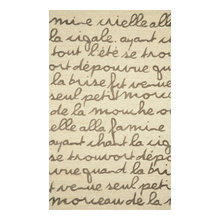 mine crielle alla
la cigale. ayant c
tout l'été se trou
ort dépourvue qu
la brise fut venue
seul petit morceau
de la mouche ou
elle alla famine
ayant chant la cig
se trouvort dépo
quand la bris
t venue seul peti
morceau de la m